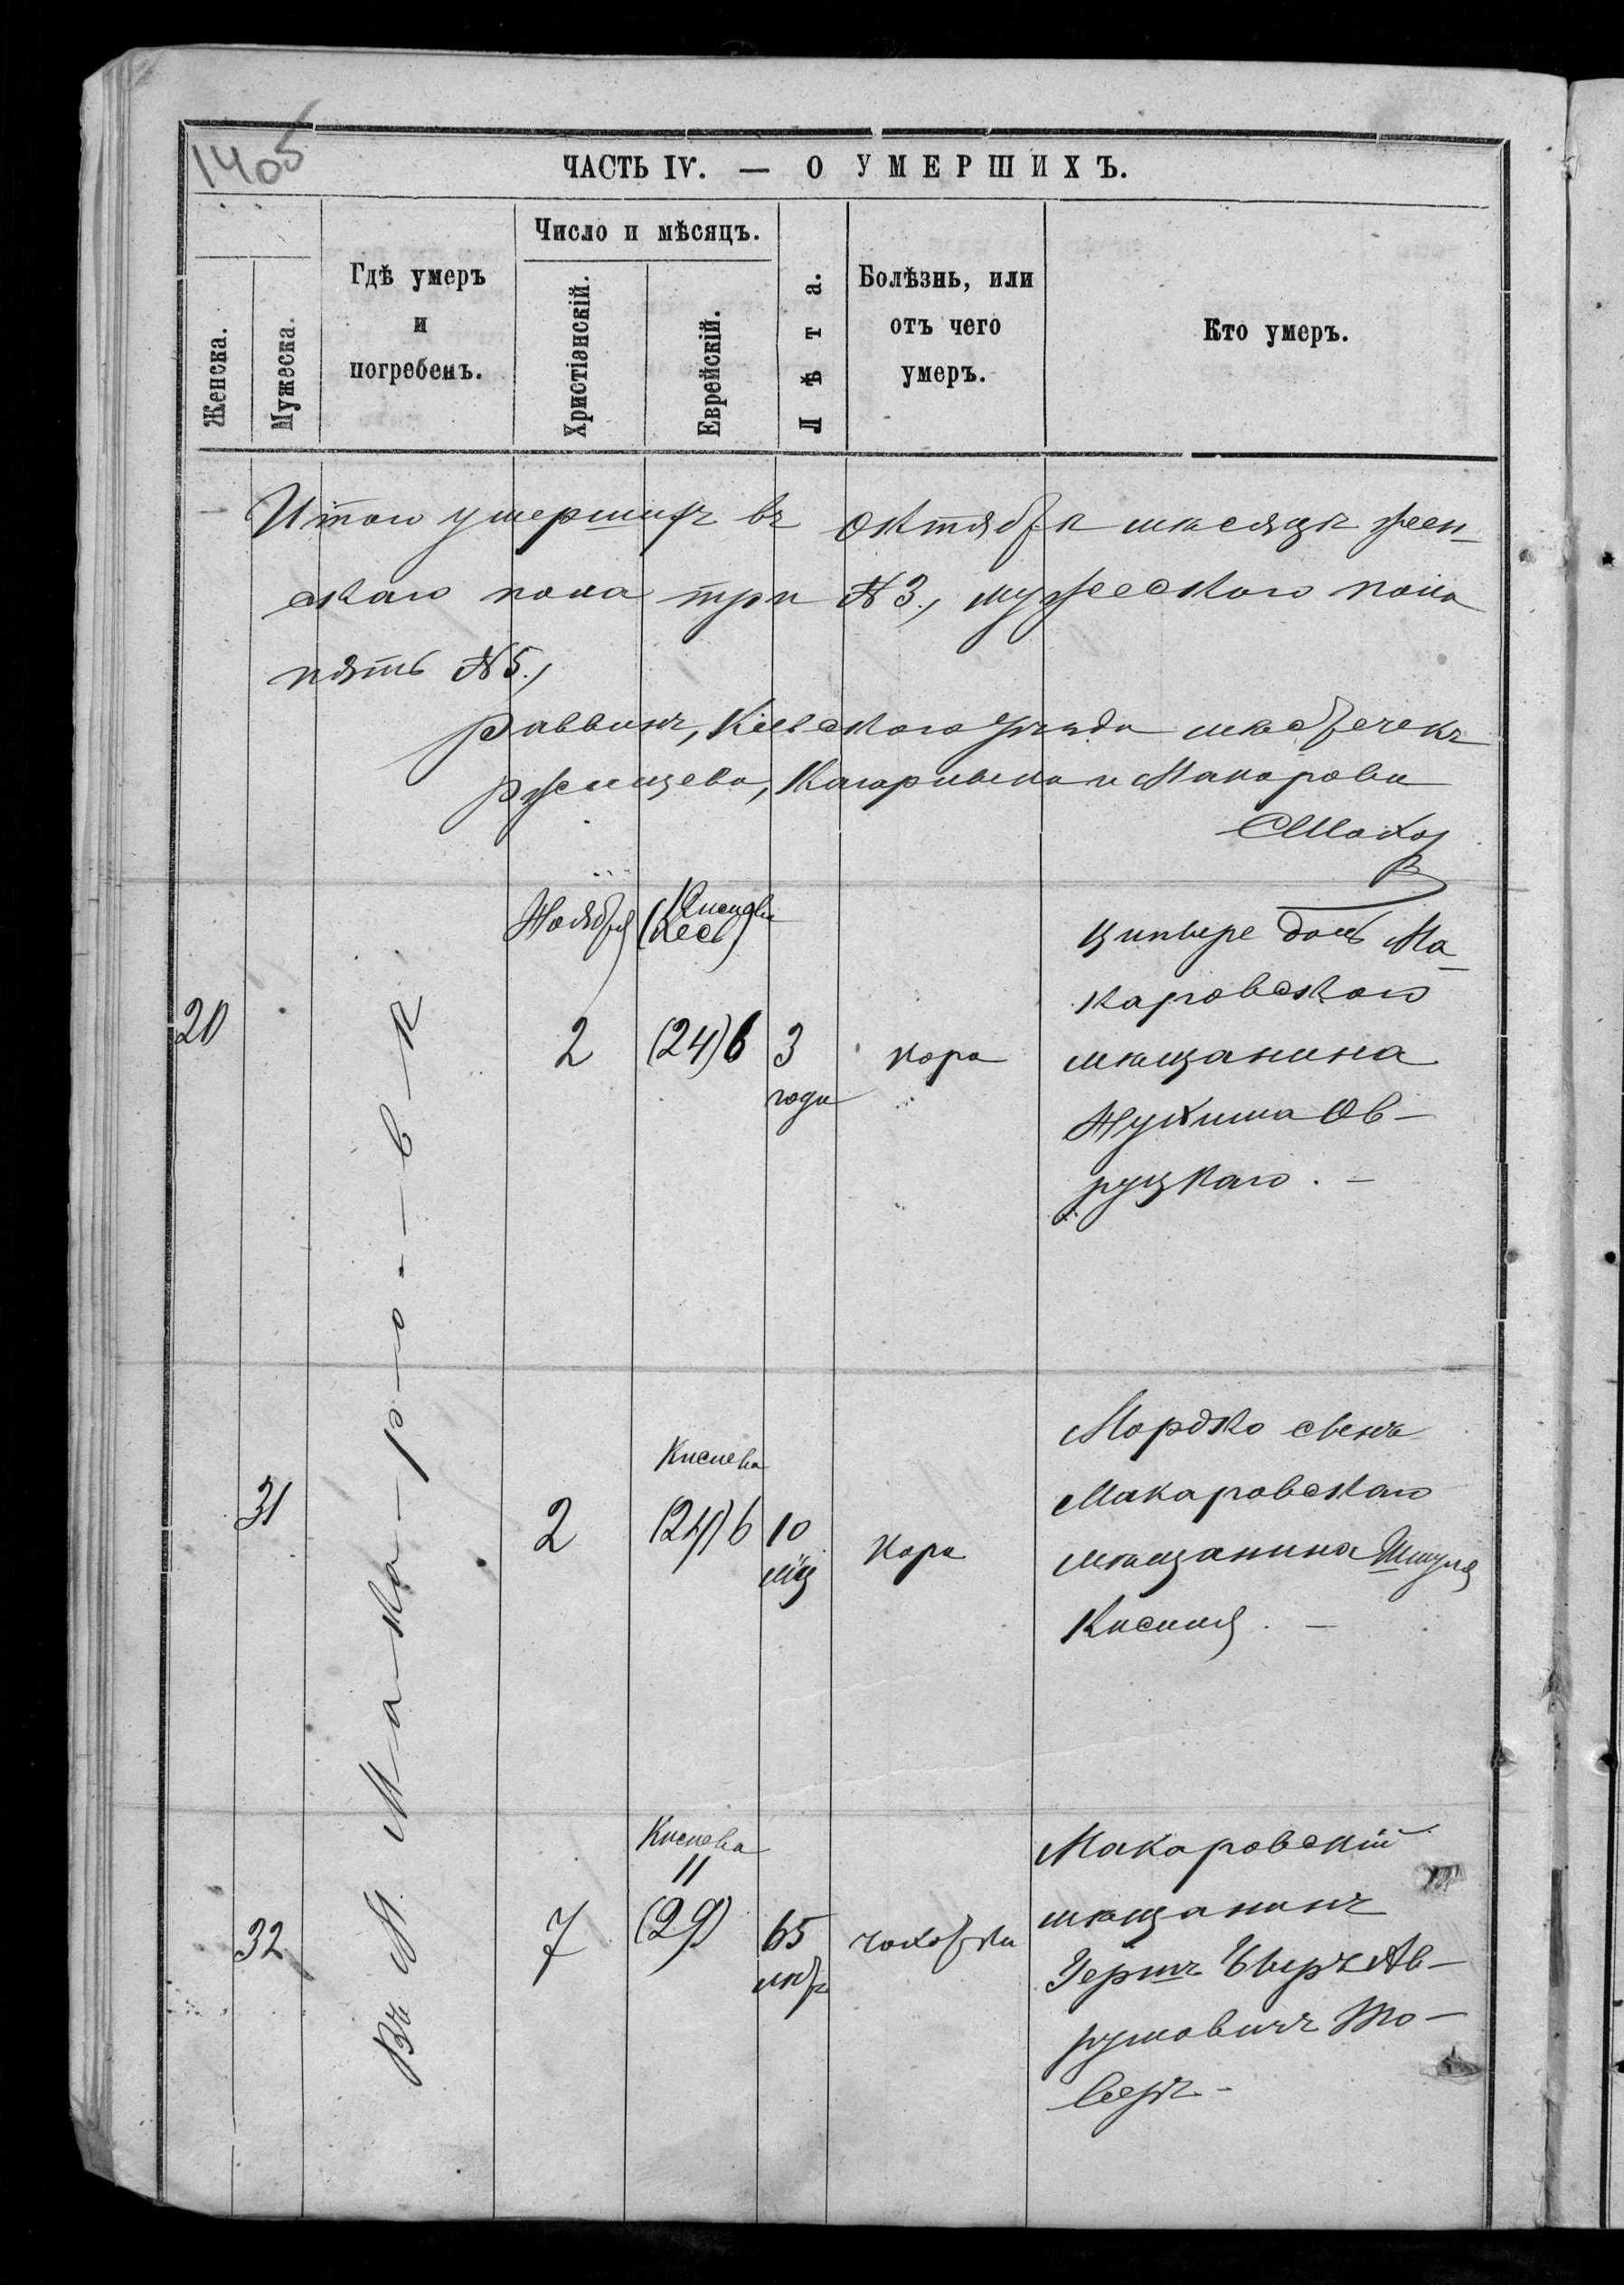 1405
ЧАСТЬ IV. — О УМЕРШИХЪ.
Женска.
Мужеска.
Гдѣ умеръ
и
погребенъ.
Число и мѣсяцъ.
Христіанскій.
Еврейскій.
Лѣта.
Болѣзнь, или
отъ чего
умеръ.
Кто умеръ.
Итого умершихъ въ Октябрѣ мѣсяцѣ жен-
скаго пола три №3., мужескаго пола
пять №5.,
Раввинъ, Кіевскаго уѣзда мѣстечекъ
Ржищева, Кагарлыка и Макарова
Въ М. Ма-ка-ро-вѣ
20
Ноября
2
Кислева
(24) 6
3
года
кора
Ципьере дочь Ма-
каровскаго
мѣщанина
Нухима Ов-
руцкаго. —
31
2
Кислева
(24) 6
10
мѣц
кора
Мордко сынъ
Макаровскаго
мѣщанина Шмуля
Кисиля. —
32
7
Кислева
11
(29)
65
лѣтъ
чахотка
Макаровскій
мѣщанинъ
Гершъ Ав-
румовичъ